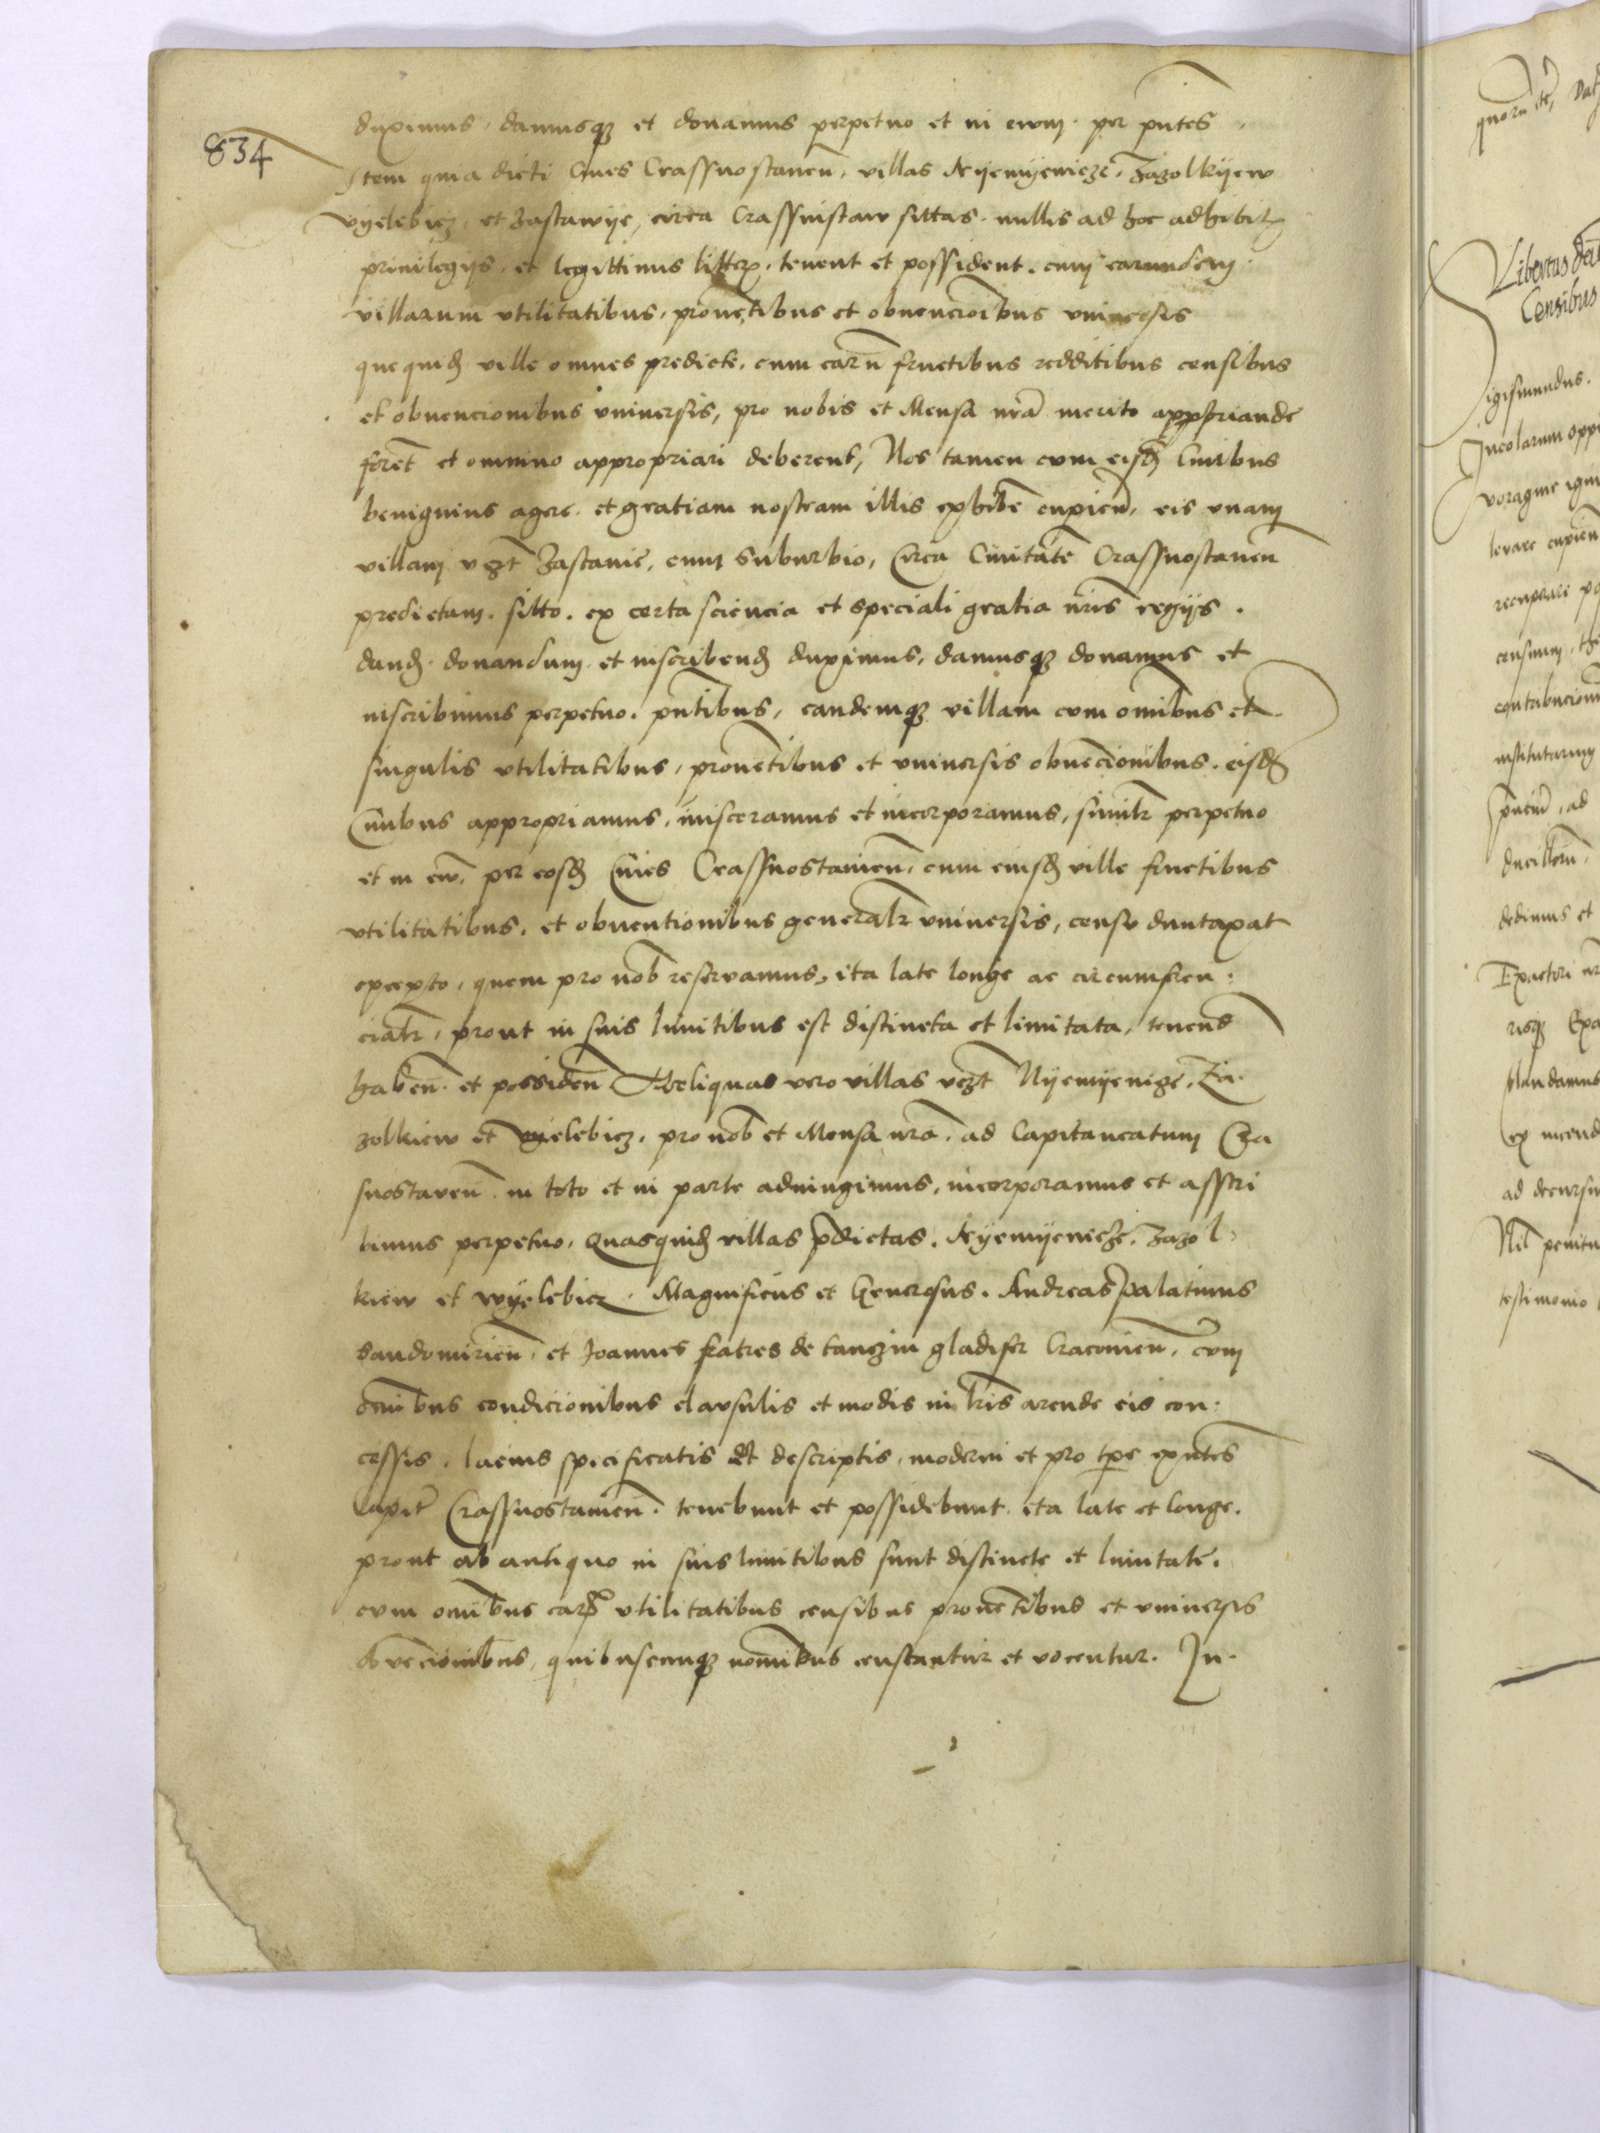 834
duximus, damusqz et donamus perpetuo et in ewm per pntes
Item quia dicti Ciues Crassnostauen, villas Nyemyenicze, Zazolkyew
Vyelebicz et Zastawye, circa Crassnistaw sittas, nullis ad hoc adhibit
priuilegijs et legittimis litter, tenent et possident, cum earundem
villarum vtilitatibus, prouentibus et obuencioibus vniuersis
que quid ville omnes predicte, cum earu fructibus redditibus censibus
et obuencionibus vniuersis, pro nobis et Mensa nra merito appropriande
foret et omnino appropriari deberent, Nos tamen cum eisd Ciuibus
benignius agere et gratiam nostram illis exhibe cupien, eis vnam
villam vzt Zastawie, cum suburbio, Circa Ciuitate Crassnostauen
predictam sitto, ex certa sciencia et speciali gratia nris regijs
dand donandum et inscribend duximus, damusqz donamus et
inscribimus perpetuo pntibus, eandemqz villam cum omibus et
singulis vtilitatibus, prouetibus et vniuersis obuecionibus, eisd
Ciuibus appropriamus, inisceramus et incorporamus, similr perpetuo
et in ew, per eosd Ciues Crassnostauien, cum eiusd ville fructibus
vtilitatibus, et obuentionibus generalr vniuersis, censu duntaxat
excepto, quem pro nob reseruamus, ita late longe ac circumferen:
cialr, prout in suis limitibus est distincta et limitata, tenend
haben et possiden Reliquas vero villas vezt Nyemyenicze, Za
zolkiew et Vyelebicz, pro nob et Mensa nra, ad Capitaneatum Cra
snostauen in toto et in parte adiungimus, incorporamus et asscri
bimus perpetuo, Quasquid villas pdictas, Nyemyenicze, Zazol
kiew et Wyelebicz, Magnificus et Generosus, Andreas palatinus
Sandomirien, et Joannes fratres de tanczin gladifer Cracouien, cum
omibus condicionibus clausulis et modis in lris arende eis con:
cessis, lacius specificatis et descriptis, moderni et pro tpe exntes
Capit Crassnostauien tenebunt et possidebunt ita late et longe
prout ab antiquo in suis limitibus sunt distincte et limitate,
cum omibus ear vtilitatibus censibus prouetibus et vniuersis
obuecionibus, quibuscumqz nomibus censeantur et vocentur. In
quoru
Libertas
Censibus
igismundus.
Incolarum
voragine
leuare
recuperare
censuum
contribucionu
institutarum
ad
ducillorum
dedimus et
Exactori
Mandamus
ex incend
ad decursu
Nil penitu
testimonio